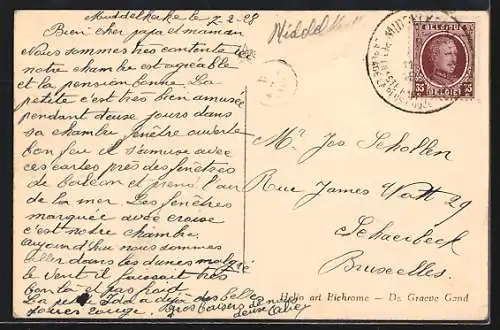 Middelkerke le 7-2-28
Middelkerke
Bien cher papa et maman
Nous sommes très contente ici
notre chambre est agréable
et la pension bonne. La
petite c'est très bien amusée
pendant deuse jours dans
sa chambre fenêtre ouverte
bon feu il s'amuse avec
ces cartes près des fenêtres
de balcon et prend l'air
de la mer. Les fenêtres
marquée avec croix
c'est notre chambre.
aujourd'hui nous sommes
aller dans les dunes malgré
le vent il faisait très
bon et pas froid.
La petite a déjà des belles
joues rouge. Gros baisers de nous
deuse
BELGIQUE
35 35
BELGIE
Mr Jos Schollen
Rue James Watt 29
Schaerbeek
Bruxelles.
Helio art Bichrome — De Graeve Gand